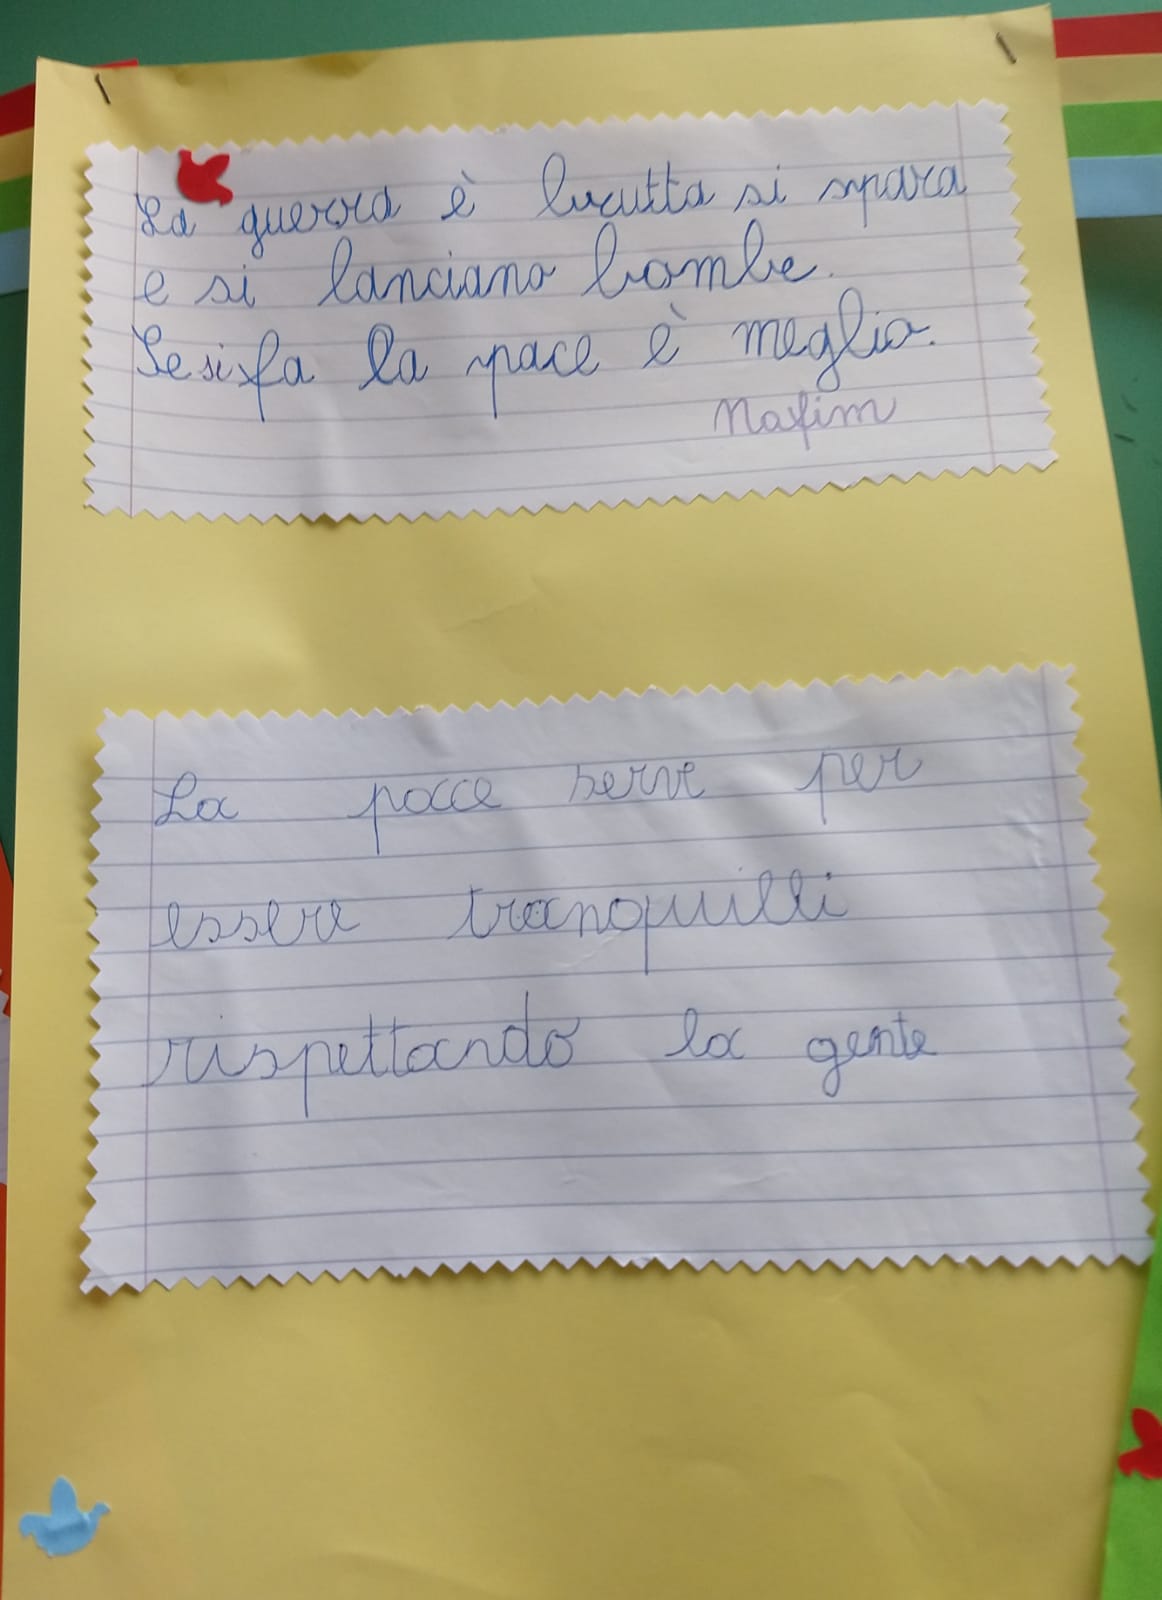 La guerra è brutta si spara
e si lanciano bombe.
Se si fa la pace è meglio.
La pace serve per
essere tranquilli
rispettando la gente